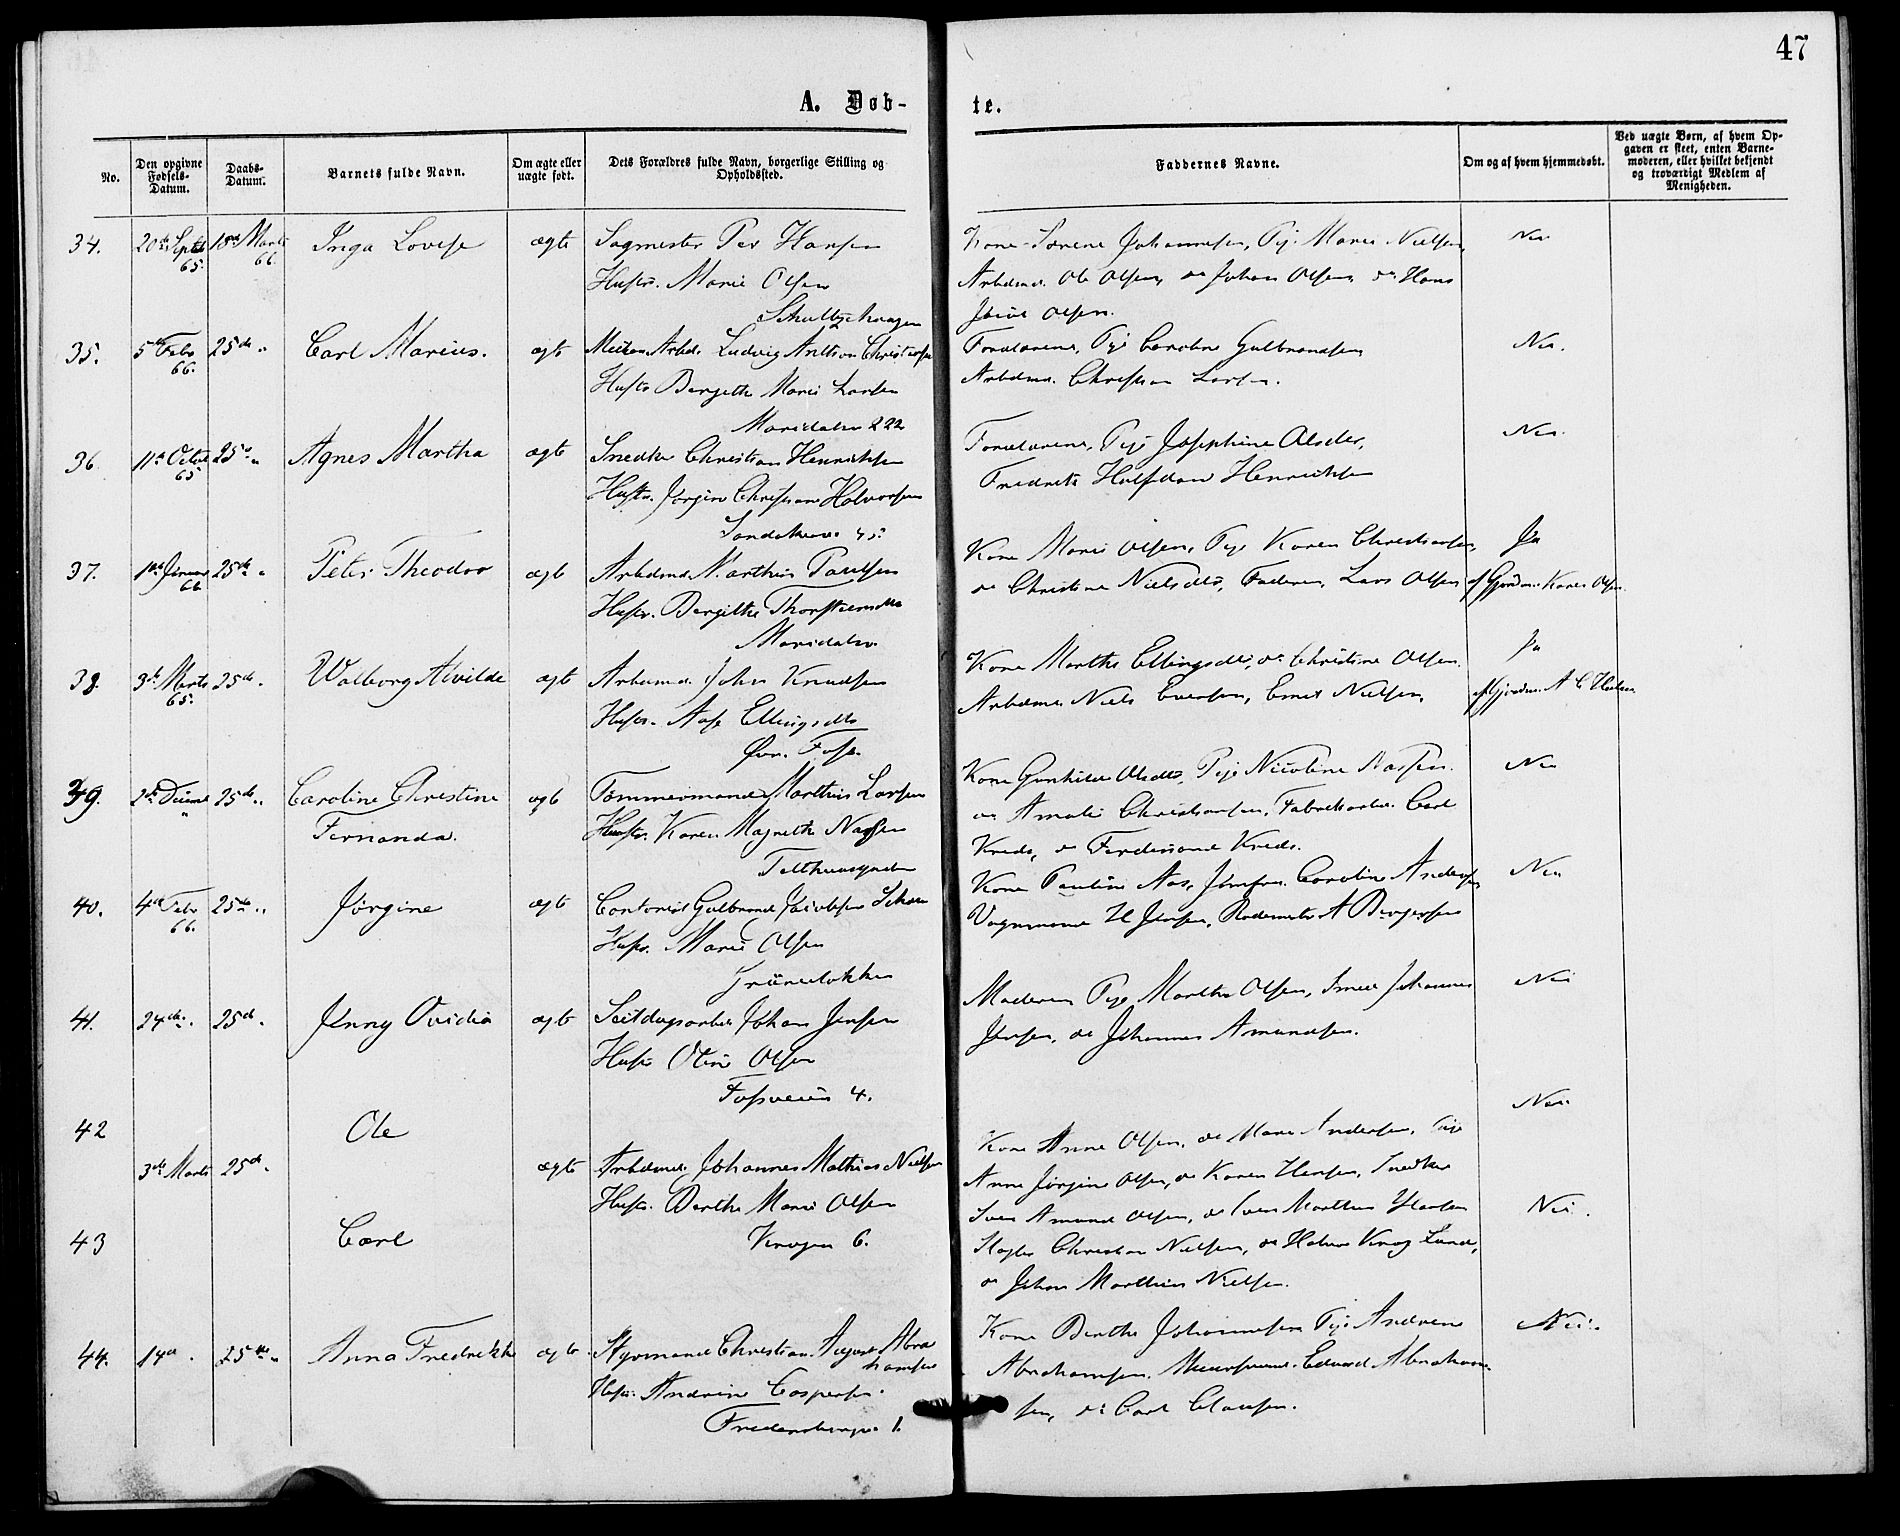 47
A. Døb-
te.
No.
Den opgivne Fødsels-Datum.
Daabs-Datum.
Barnets fulde Navn.
Om ægte eller uægte født.
Dets Forældres fulde Navn, borgerlige Stilling og Opholdssted.
Faddernes Navne.
Om og af hvem hjemmedøbt.
Ved uægte Børn, af hvem Op-
gaven er skeet, enten Barne-
moderen, eller hvilket bekjendt
og troværdigt Medlem af
Menigheden.
34. 20de Septbr 65. 18de Marts 66. Inga Lovise ægte Sagmester Per Hansen
Hustr. Marie Olsen
Kone Sørene Johannesen, Pige Maren Nielsen, Nei
Arbdmd. Ole Olsen, do Johan Olsen, do Hans
Olsen.
35. 5te Febr 66. 25de " Carl Marius. ægte Arbd. Ludvig Anthon Christensen
Hustr Bergethe Marie Larsen
Maridalsv 222
Forældrene, Pige Caroline Gulbrandsen, Nei.
Arbdmd. Christian Larsen.
36. 11te Octbr 65. 25de " Agnes Martha ægte Snedker Christian Henriksen
Hustr. Jørgine Christiane Halvorsen
Sandakerv. 45.
Forældrene, Pige Josephine Olsdtr, Nei
Halfdan Henriksen
37. 1ste Januar 66. 25de " Peter Theodor ægte Arbdmd. Marthin Paulsen
Hustr. Bergithe Thorstensdtr
Maridalsv.
Kone Marie Olsen, Pige Karen Christiansen, Ja
do Christine Nielsdtr, Faderen, Lars Olsen af Gjordm. Karen Olsen.
38. 3de Marts 65. 25de " Walborg Alvilde ægte Arbdmd. John Knudsen
Hustr. Aase Ellingsdtr
Øvr. Foss.
Kone Marthe Ellingsdtr, do Christine Olsen. Ja
Arbdmd. Niels Evensen, Emil Nielsen, af Gjordm. A C
39. 2de Decmb " 25de " Caroline Christine ægte Tømmermand Marthius Larsen
Fernanda. Hustr. Karen Magnethe
Kone Gunhilde Olsdtr, Pige Nicoline Nei
do Amalie Christiansen, Fabrikarbd. Carl
Kreds, do Ferdinand Kreds.
40. 4de Febr 66. 25de " Jørgine ægte Contorist Gulbrand Jacobsen
Hustr. Marie Olsen
Grünerløkken
Kone Pauline Aas, Jomfru Caroline Andersen, Nei
Vognmand H Jensen, A Birgersen
41. 24de " 25de " Jenny Ovidia ægte Johan Jensen
Hustr Oline Olsen
Fossveien 4.
Moderen, Pige Marthe Olsen, Smed Johannes Nei
Jensen, do Johannes Amundsen.
42 Ole Nei
3de Marts 25de " ægte Arbdmd. Johannes Mathias Nielsen
Hustr. Berthe Marie Olsen
Krogen 6.
43 Carl Nei.
Kone Anne Olsen, do Maren Andersen, Pige
Anne Jørgine Olsen, do Karen Hansen, Snedker
Amund Olsen, do Iver Marthin
Christian Nielsen, do Halvor Krog Lund,
do Johan Marthin Nielsen.
44. 14de " 25de " Anna Fredrikke ægte Styrmand Christian August Abra
hamsen
Hustr. Andrine Caspersen.
1.
Kone Berthe Johannesen, Pige Andrene Nei.
Abrahamsen, Edvard Abraham-
sen, do Carl Clausen.